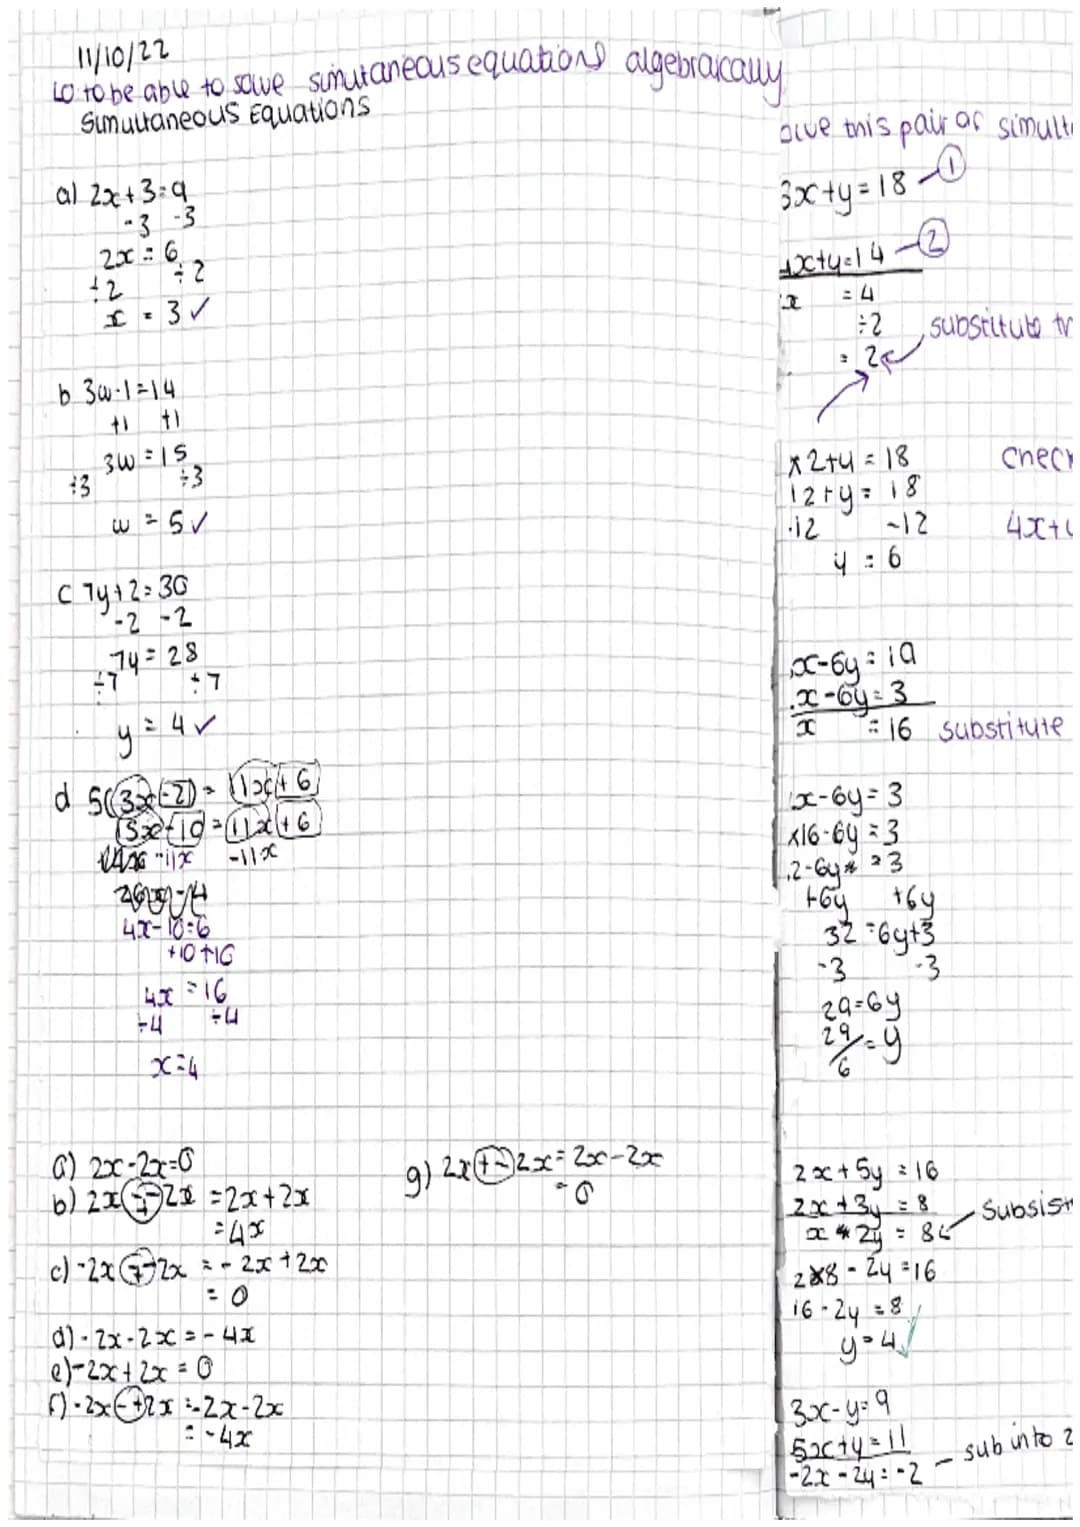 11/10/22
LO to be able to solve simutaneous equations algebraically
Simultaneous Equations
a) 2x+3=9
-3 -3
2x = 6
÷2 ÷2
x = 3 ✓
b 3w-1=14
+1 +1
3w = 15
÷3 ÷3
w = 5 ✓
c 7y+2=30
-2 -2
7y = 28
÷7 ÷7
y = 4 ✓
d 5(3x-2) = 11x+6
15x-10 = 11x+6
-11x -11x
4x-10=6
+10 +10
4x = 16
÷4 ÷4
x=4
a) 2x-2x=0
b) 2x--2x = 2x+2x
= 4x
c) -2x--2x = -2x+2x
= 0
d) -2x-2x = -4x
e) -2x+2x = 0
f) -2x-+2x = -2x-2x
= -4x
g) 2x+-2x = 2x-2x
= 0
olve this pair of simult
3x+y=18 - 1
x+y=14 - 2
x = 4
÷2
= 2
substitute
x2+y = 18
12+y = 18
-12 -12
y = 6
check
4x+
x-6y = 19
x-6y = 3
x = 16 substitute
x-6y = 3
x16-6y = 3
2-6y = 3
+6y +6y
32 = 6y+3
-3 -3
29=6y
29/6 = y
2x+5y = 16
2x+3y = 8
x 2y = 8 Subsist
2x8-2y = 16
16-2y = 8
y=4 ✓
3x-y=9
5x+y=11
-2x-2y=-2 - sub into 2